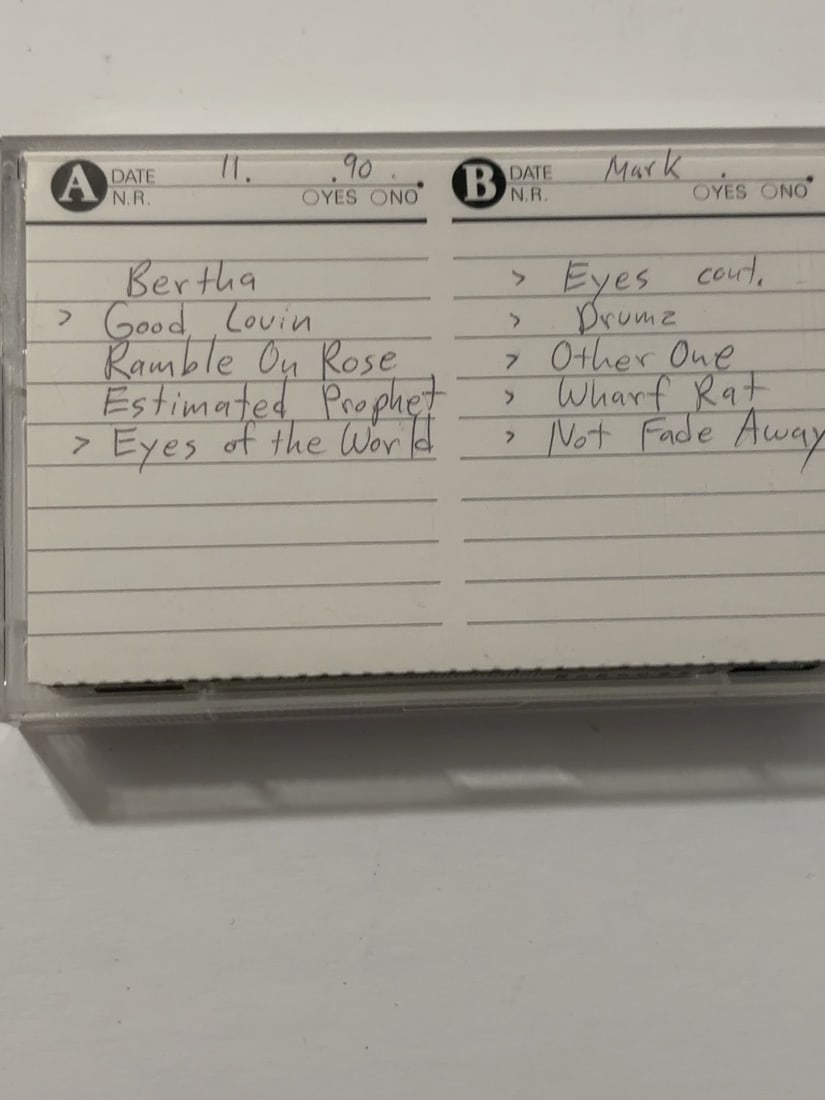 A DATE 11. .90 .
N.R. ○YES ○NO
Bertha
> Good Lovin
Ramble On Rose
Estimated Prophet
> Eyes of the World
B DATE Mark .
N.R. ○YES ○NO
> Eyes cont.
> Drumz
> Other One
> Wharf Rat
> Not Fade Away